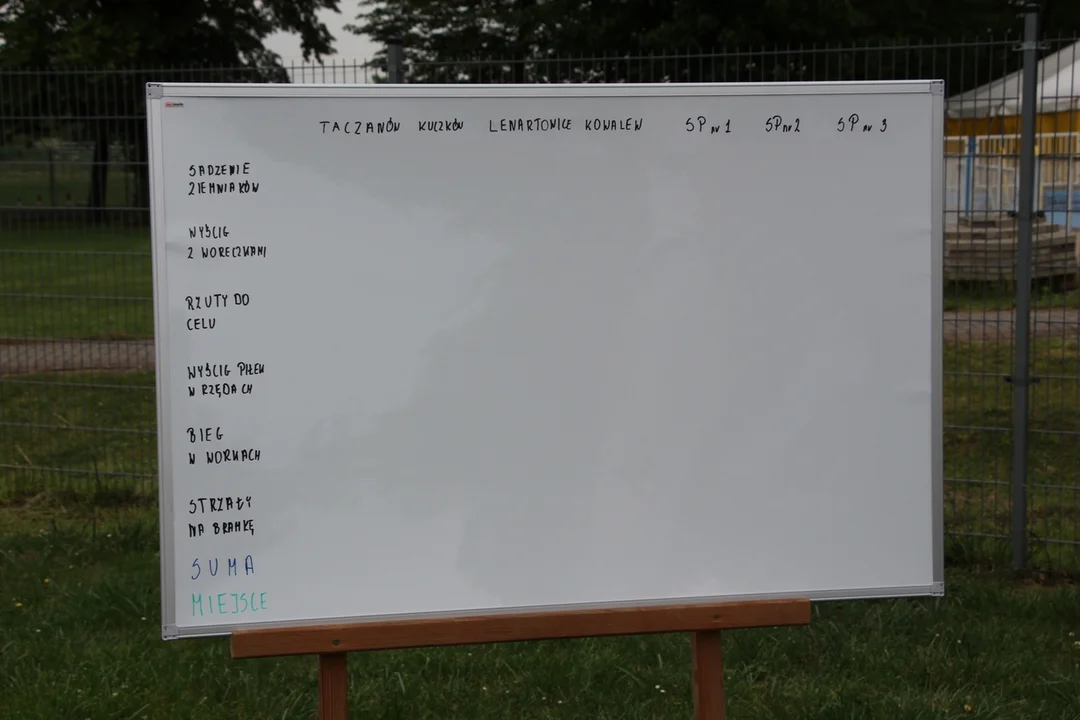 TACZANÓW KUCZKÓW LENARTOWICE KOWALEW SP nr 1 SP nr 2 SP nr 3
SADZENIE
ZIEMNIAKÓW
WYŚCIG
Z WORECZKAMI
RZUTY DO
CELU
WYŚCIG PIŁEK
W RZĘDACH
BIEG
W WORKACH
STRZAŁY
NA BRAMKĘ
SUMA
MIEJSCE